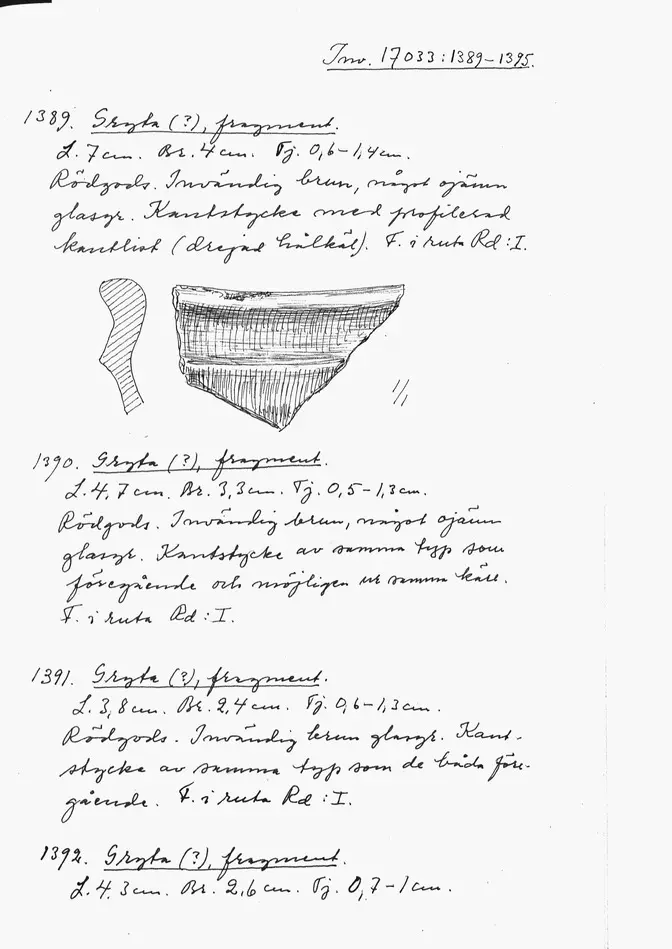 Inv. 17033:1389-1395.
1389. Gryta (?), fragment.
L. 7 cm. Br. 4 cm. Tj. 0,6-1,4 cm.
Rödgods. Invändig brun, något ojämn
glasyr. Kantstycke med profilerad
kantlist (drejad hålkäl). F. i ruta Rd:I.
1/1
1390. Gryta (?), fragment.
L. 4,7 cm. Br. 3,3 cm. Tj. 0,5-1,3 cm.
Rödgods. Invändig brun, något ojämn
glasyr. Kantstycke av samma typ som
föregående och möjligen ur samma kärl.
F. i ruta Rd:I.
1391. Gryta (?), fragment.
L. 3,8 cm. Br. 2,4 cm. Tj. 0,6-1,3 cm.
Rödgods. Invändig brun glasyr. Kant-
stycke av samma typ som de båda före-
gående. F. i ruta Rd:I.
1392. Gryta (?), fragment.
L. 4,3 cm. Br. 2,6 cm. Tj. 0,7-1 cm.